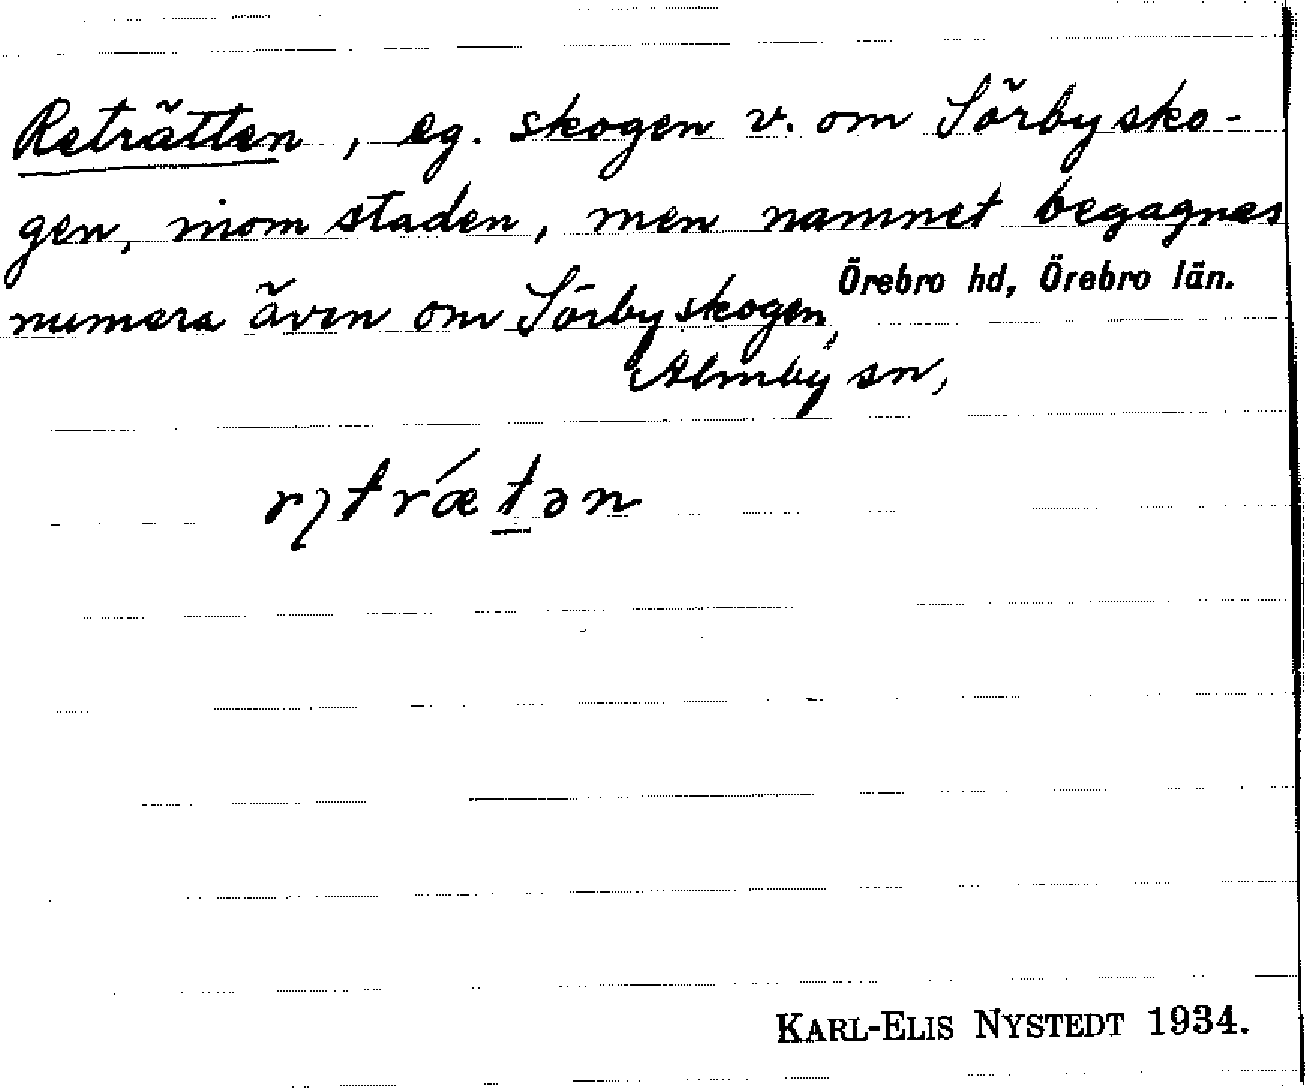 Reträtten, eg. skogen v. om Sörbysko-
gen, inom staden, men namnet begagnas
numera även om Sörbyskogen,
Örebro hd, Örebro län.
Almby sn,
KARL-ELIS NYSTEDT 1934.